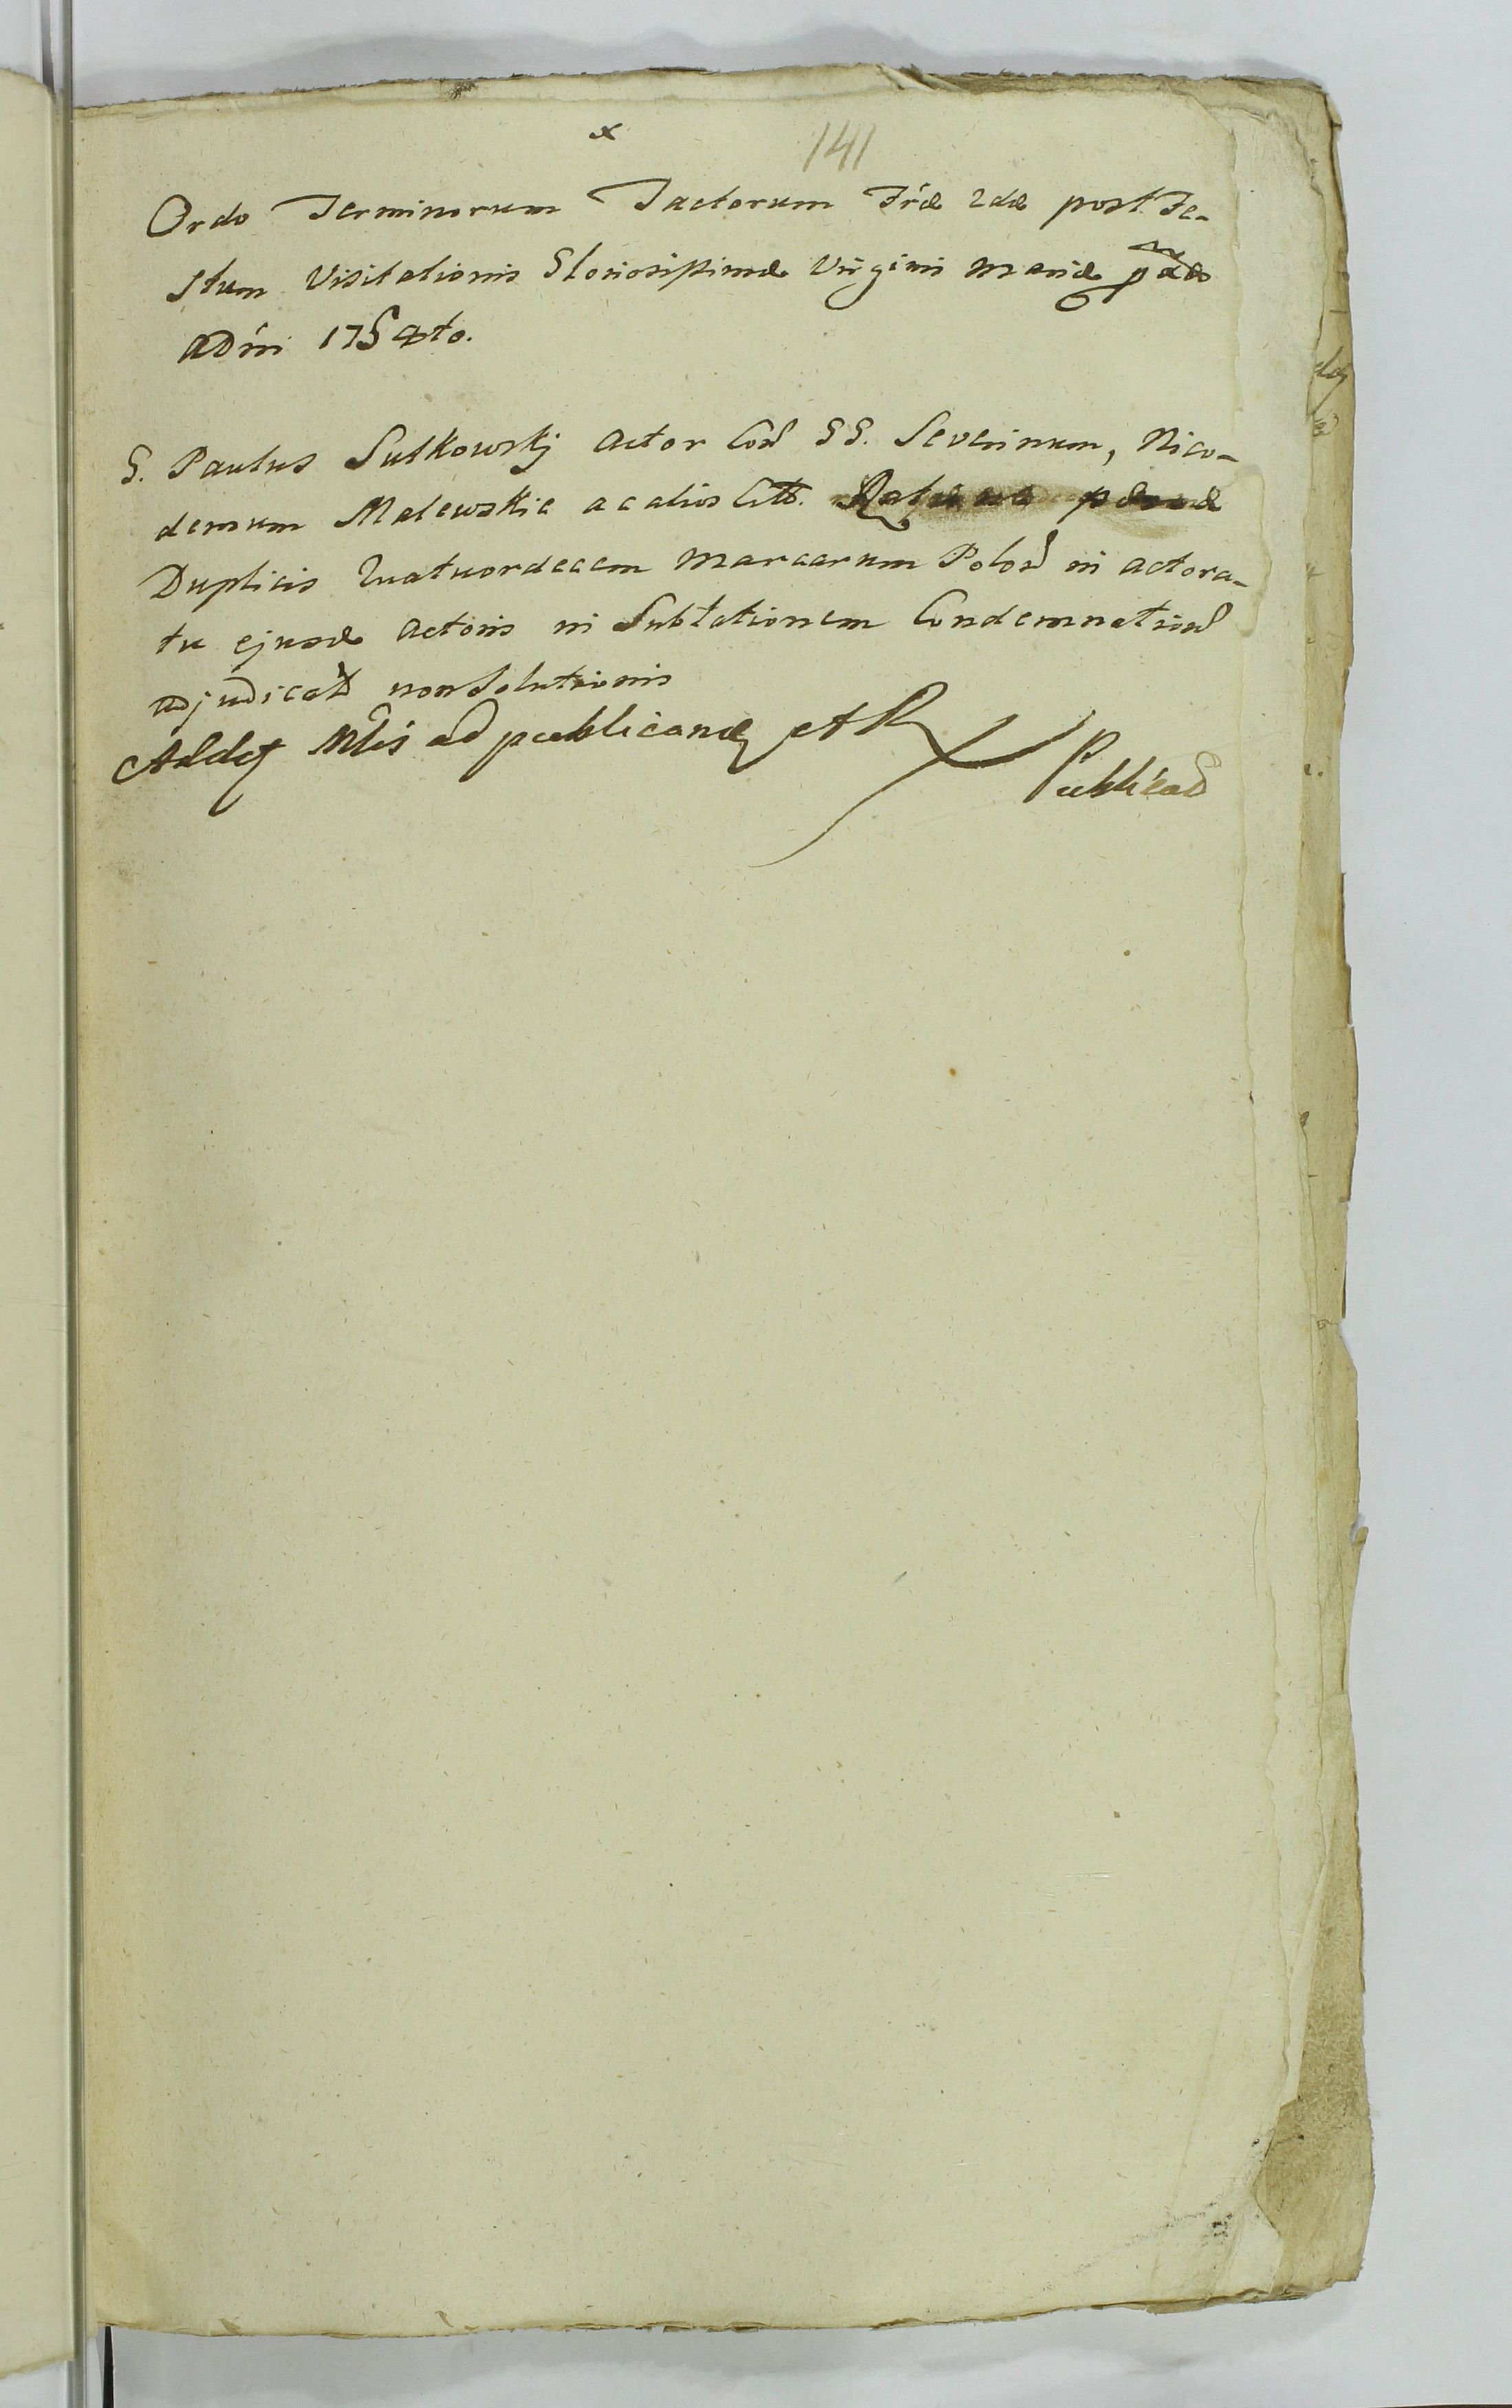 x
141
Ordo Terminorum Tactorum Fríæ 2dæ post Fe-
stum Visitationis Gloriosissimæ Virginis Mariæ
ADni 1754to.
G. Paulus Sutkowskj Actor Con GG. Severinum, Nico-
demum Malewskie ac alios Citt. Ratione pænæ
Duplicis Quatuordecem Marcarum Polon in actora-
tu ejusd Actoris in Sublationem Condemnation
adjudicat non Solutionis
ad publicand AR
Publicad